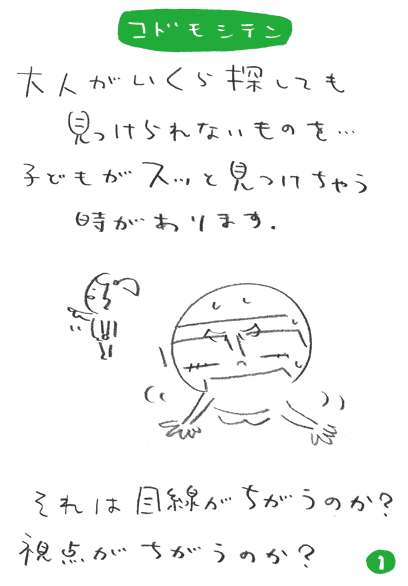 コドモシテン
大人がいくら探しても
見つけられないものを…
子どもがスッと見つけちゃう
時があります.
それは目線がちがうのか?
視点がちがうのか?
1